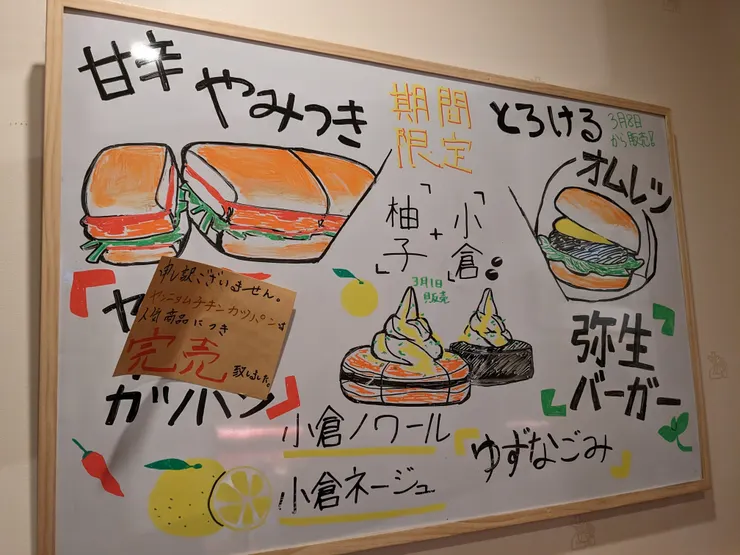 甘辛
やみつき
期間
限定
とろける
3月8日
から販売!
オムレツ
「柚子」
+
「小倉」
3月1日
販売
申し訳ございません。
ヤンニョムチキンカツパンは
人気商品につき
完売
致しました。
「ヤ
カツパン」
弥生
バーガー
小倉ノワール
小倉ネージュ
ゆずなごみ